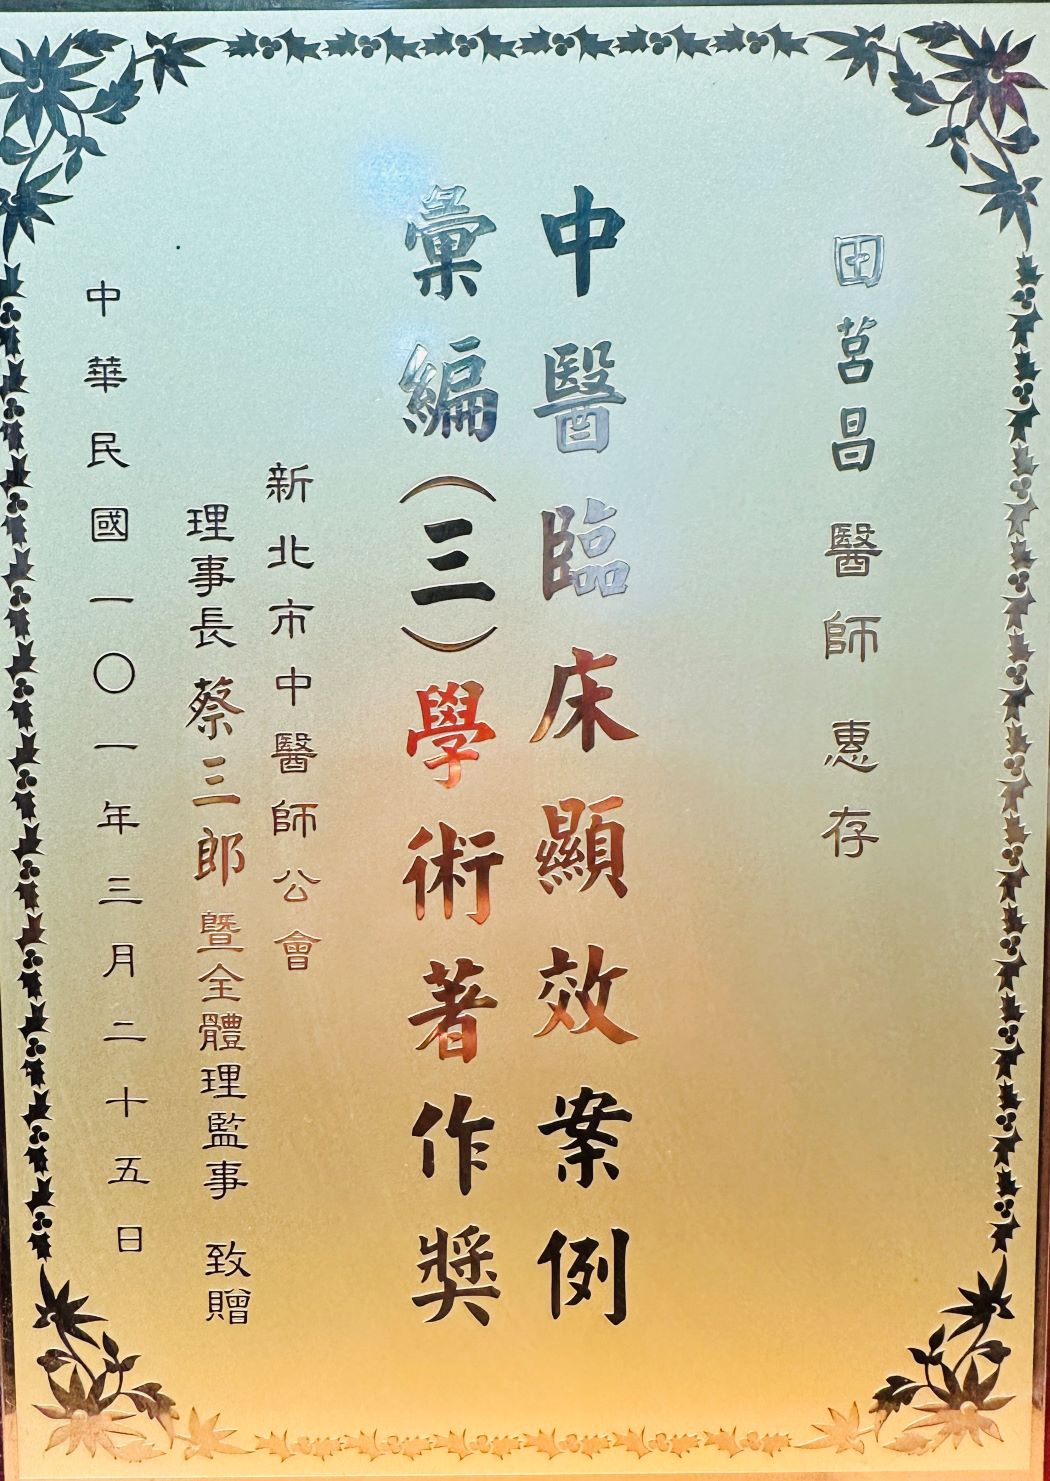 田莒昌 醫師 惠存
中醫臨床顯效案例
彙編(三)學術著作獎
新北市中醫師公會
理事長 蔡三郎 暨全體理監事 致贈
中華民國一〇一年三月二十五日